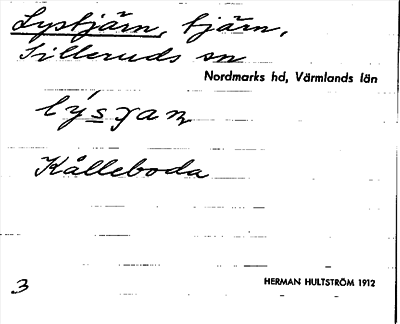 Lystjärn, tjärn,
Silleruds sn
Nordmarks hd, Värmlands län
Kålleboda
3
HERMAN HULTSTRÖM 1912